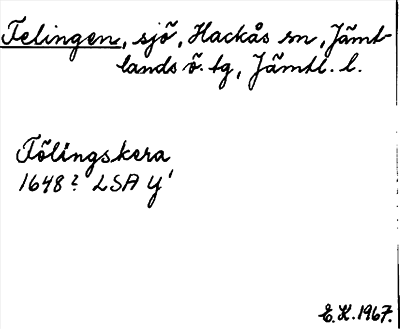 Felingen, sjö, Hackås sn, Jämt-
lands ö. tg, Jämtl. l.
Fölingskera
1648? LSA Y'
E.H. 1967.